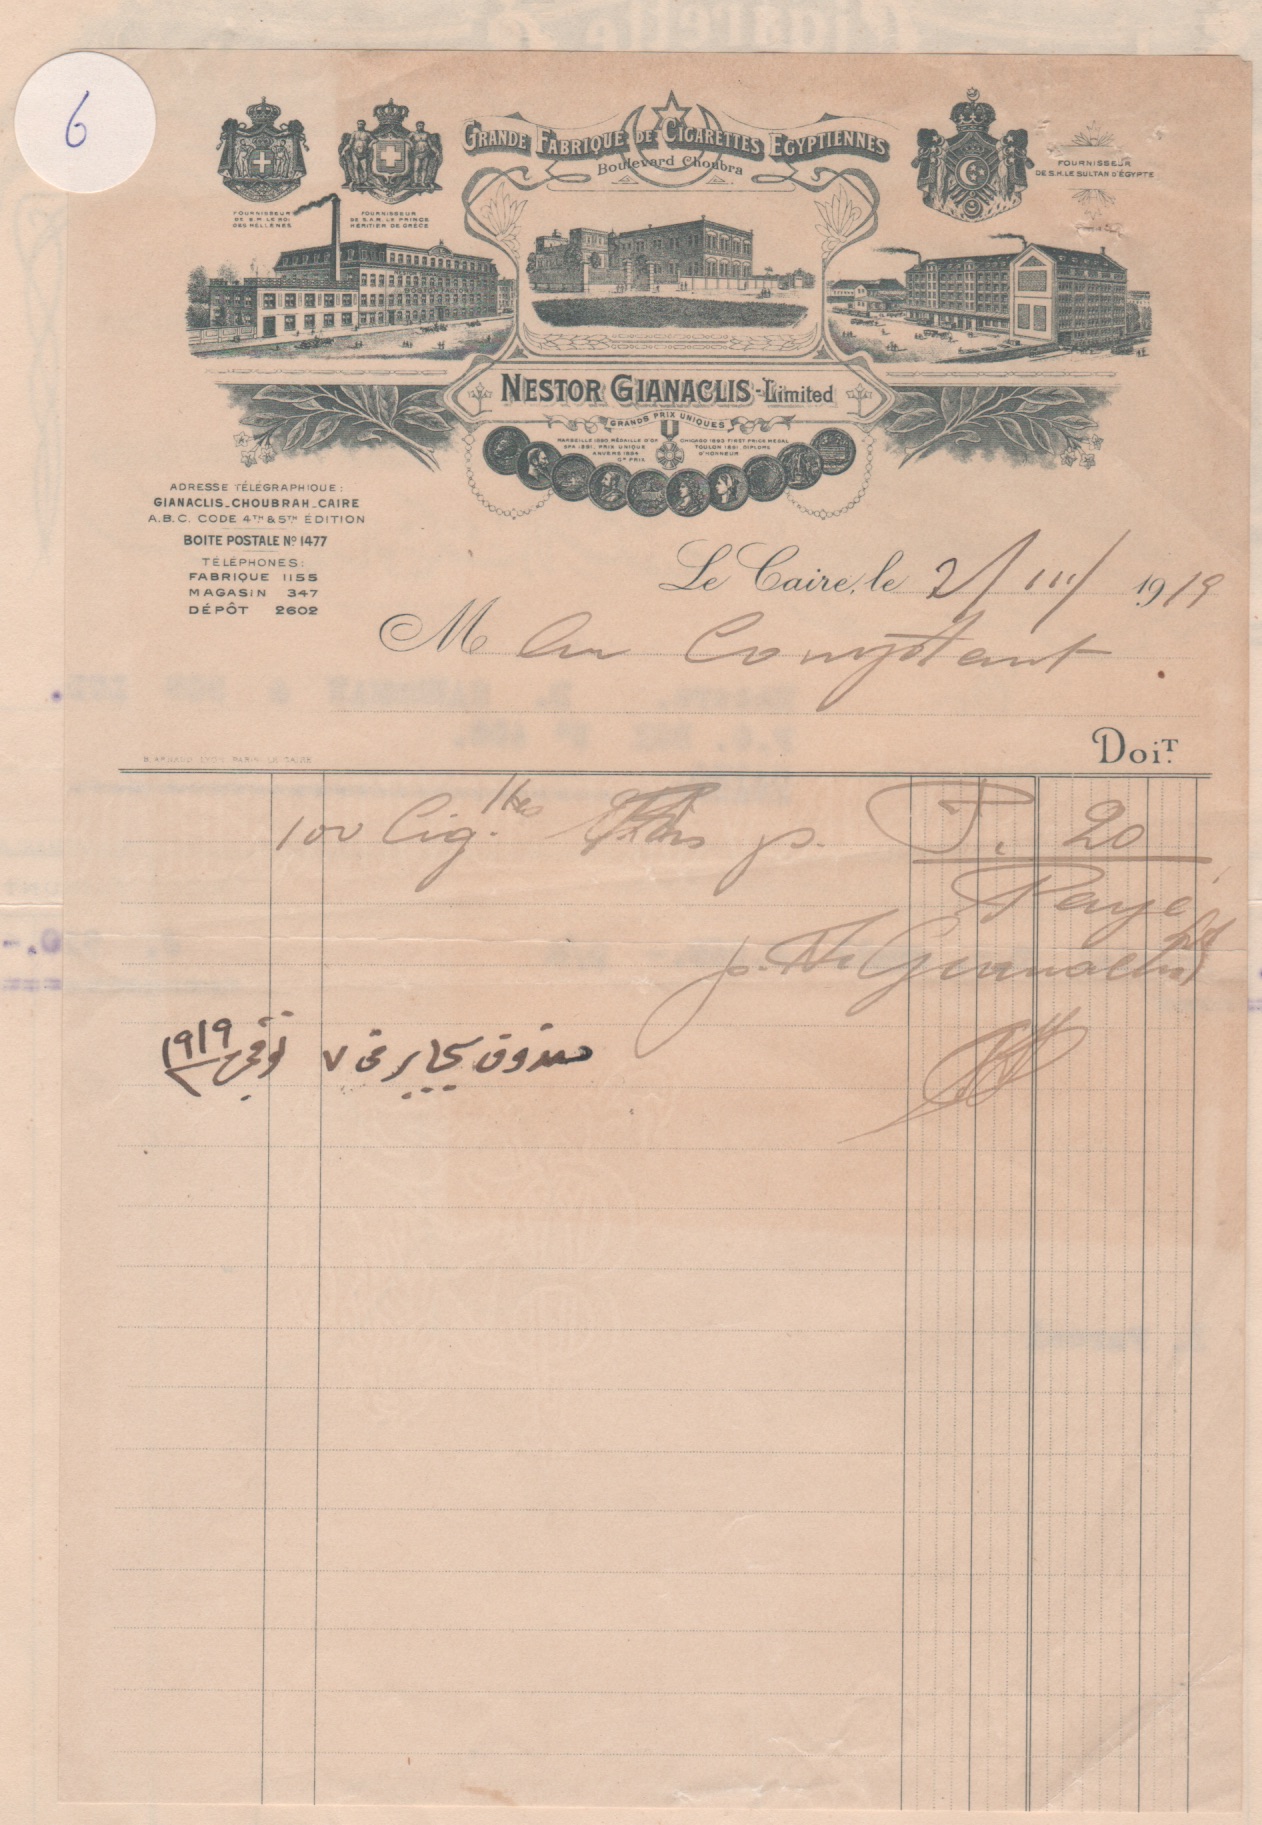 6
GRANDE FABRIQUE DE CIGARETTES EGYPTIENNES
Boulevard Choubra
FOURNISSEUR
DE S.M. LE ROI
DES HELLENES
FOURNISSEUR
DE S.A.R. LE PRINCE
HÉRITIER DE GRÈCE
FOURNISSEUR
DE S.H. LE SULTAN D'ÉGYPTE
NESTOR GIANACLIS - Limited
GRANDS PRIX UNIQUES
MARSEILLE 1890 MÉDAILLE D'OR
SPA 1891, PRIX UNIQUE
ANVERS 1894
Gd PRIX
CHICAGO 1893 FIRST PRICE MEDAL
TOULON 1891 DIPLOME
D'HONNEUR
ADRESSE TÉLÉGRAPHIQUE:
GIANACLIS_CHOUBRAH_CAIRE
A.B.C. CODE 4TH & 5TH ÉDITION
BOITE POSTALE No 1477
TÉLÉPHONES:
FABRIQUE 1155
MAGASIN 347
DÉPÔT 2602
Le Caire, le 2/III/1919
M Au Comptant
DOIT.
B. ARNAUD LYON PARIS LE CAIRE
100 Cig. p. P. 20
Payé
p. N. Gianaclis
صندوق ٧ ١٩١٩